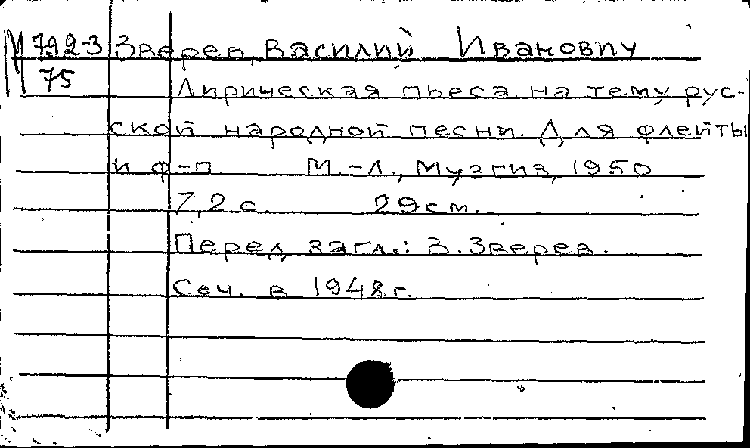 М 792-3 Зверев, Василий Иванович
75
Лирическая пьеса на тему рус-
ской народной песни. Для флейты
и ф-п. М.-Л., Музгиз, 1950
7,2 с. 29 см.
Перед загл.: В. Зверев.
Соч. в 1948 г.